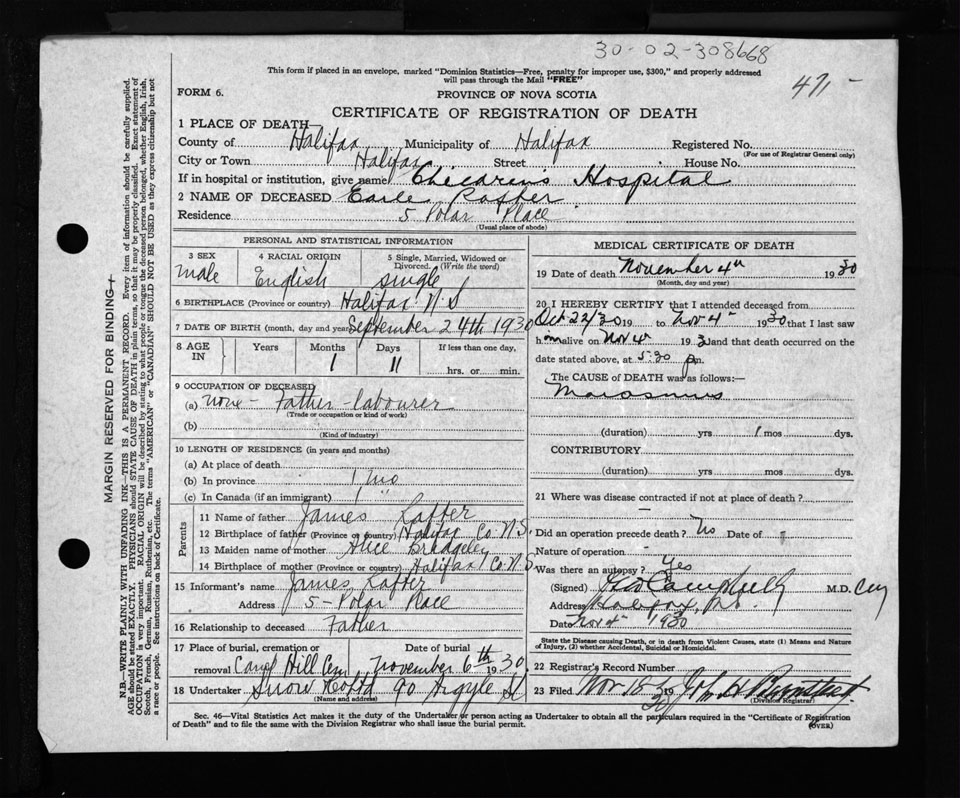 30-02-308668
This form if placed in an envelope, marked "Dominion Statistics—Free, penalty for improper use, $300," and properly addressed
will pass through the Mail "FREE"
471-
FORM 6.
PROVINCE OF NOVA SCOTIA
CERTIFICATE OF REGISTRATION OF DEATH
1 PLACE OF DEATH—
County of Halifax Municipality of Halifax Registered No.
(For use of Registrar General only)
City or Town Halifax Street House No.
If in hospital or institution, give name Children's Hospital
2 NAME OF DECEASED Earle Rafter
Residence 5 Polar Place
(Usual place of abode)
PERSONAL AND STATISTICAL INFORMATION
3 SEX 4 RACIAL ORIGIN 5 Single, Married, Widowed or Divorced. (Write the word)
male English single
6 BIRTHPLACE (Province or country) Halifax N.S
7 DATE OF BIRTH (month, day and year) September 24th 1930
8 AGE IN Years Months Days If less than one day,
1 11 hrs. or min.
9 OCCUPATION OF DECEASED
(a) none - Father - labourer
(Trade or occupation or kind of work)
(b)
(Kind of industry)
10 LENGTH OF RESIDENCE (in years and months)
(a) At place of death
(b) In province 1 mo
(c) In Canada (if an immigrant) 1 "
Parents
11 Name of father James Rafter
12 Birthplace of father (Province or country) Halifax Co. N.S.
13 Maiden name of mother Alice
14 Birthplace of mother (Province or country) Halifax Co. N.S.
15 Informant's name James Rafter
Address 5 - Polar Place
16 Relationship to deceased Father
17 Place of burial, cremation or removal Date of burial
Hill Cem November 6th 1930
18 Undertaker Snow 90 Argyle St
(Name and address)
MEDICAL CERTIFICATE OF DEATH
19 Date of death November 4th 1930
(Month, day and year)
20 I HEREBY CERTIFY that I attended deceased from
Oct 22/30 19 to Nov 4th 1930 that I last saw
him alive on Nov 4th 1930 and that death occurred on the
date stated above, at 5.30 p.m.
The CAUSE OF DEATH was as follows:—
Marasmus
(duration) yrs 1 mos dys.
CONTRIBUTORY
(duration) yrs mos dys.
21 Where was disease contracted if not at place of death?
-
Did an operation precede death? No Date of
Nature of operation -
Was there an autopsy? Yes
(Signed) Campbell M.D.
Address Halifax, N.S.
Date Nov 4th 1930
State the Disease causing Death, or in death from Violent Causes, state (1) Means and Nature
of Injury, (2) whether Accidental, Suicidal or Homicidal.
22 Registrar's Record Number
23 Filed Nov 18 1930 John H
(Division Registrar)
Sec. 46—Vital Statistics Act makes it the duty of the Undertaker or person acting as Undertaker to obtain all the particulars required in the "Certificate of Registration
of Death" and to file the same with the Division Registrar who shall issue the burial permit.
(OVER)
MARGIN RESERVED FOR BINDING
N.B.—WRITE PLAINLY WITH UNFADING INK—THIS IS A PERMANENT RECORD. Every item of information should be carefully supplied.
AGE should be stated EXACTLY. PHYSICIANS should STATE CAUSE OF DEATH in plain terms, so that it may be properly classified. Exact statement of
OCCUPATION is very important. RACIAL ORIGIN will be described by stating to what people or tongue the deceased person belonged, whether English, Irish,
Scotch, French, German, Russian, Ruthenian, etc. The terms "AMERICAN" or "CANADIAN" SHOULD NOT BE USED as they express citizenship but not
a race or people. See instructions on back of Certificate.